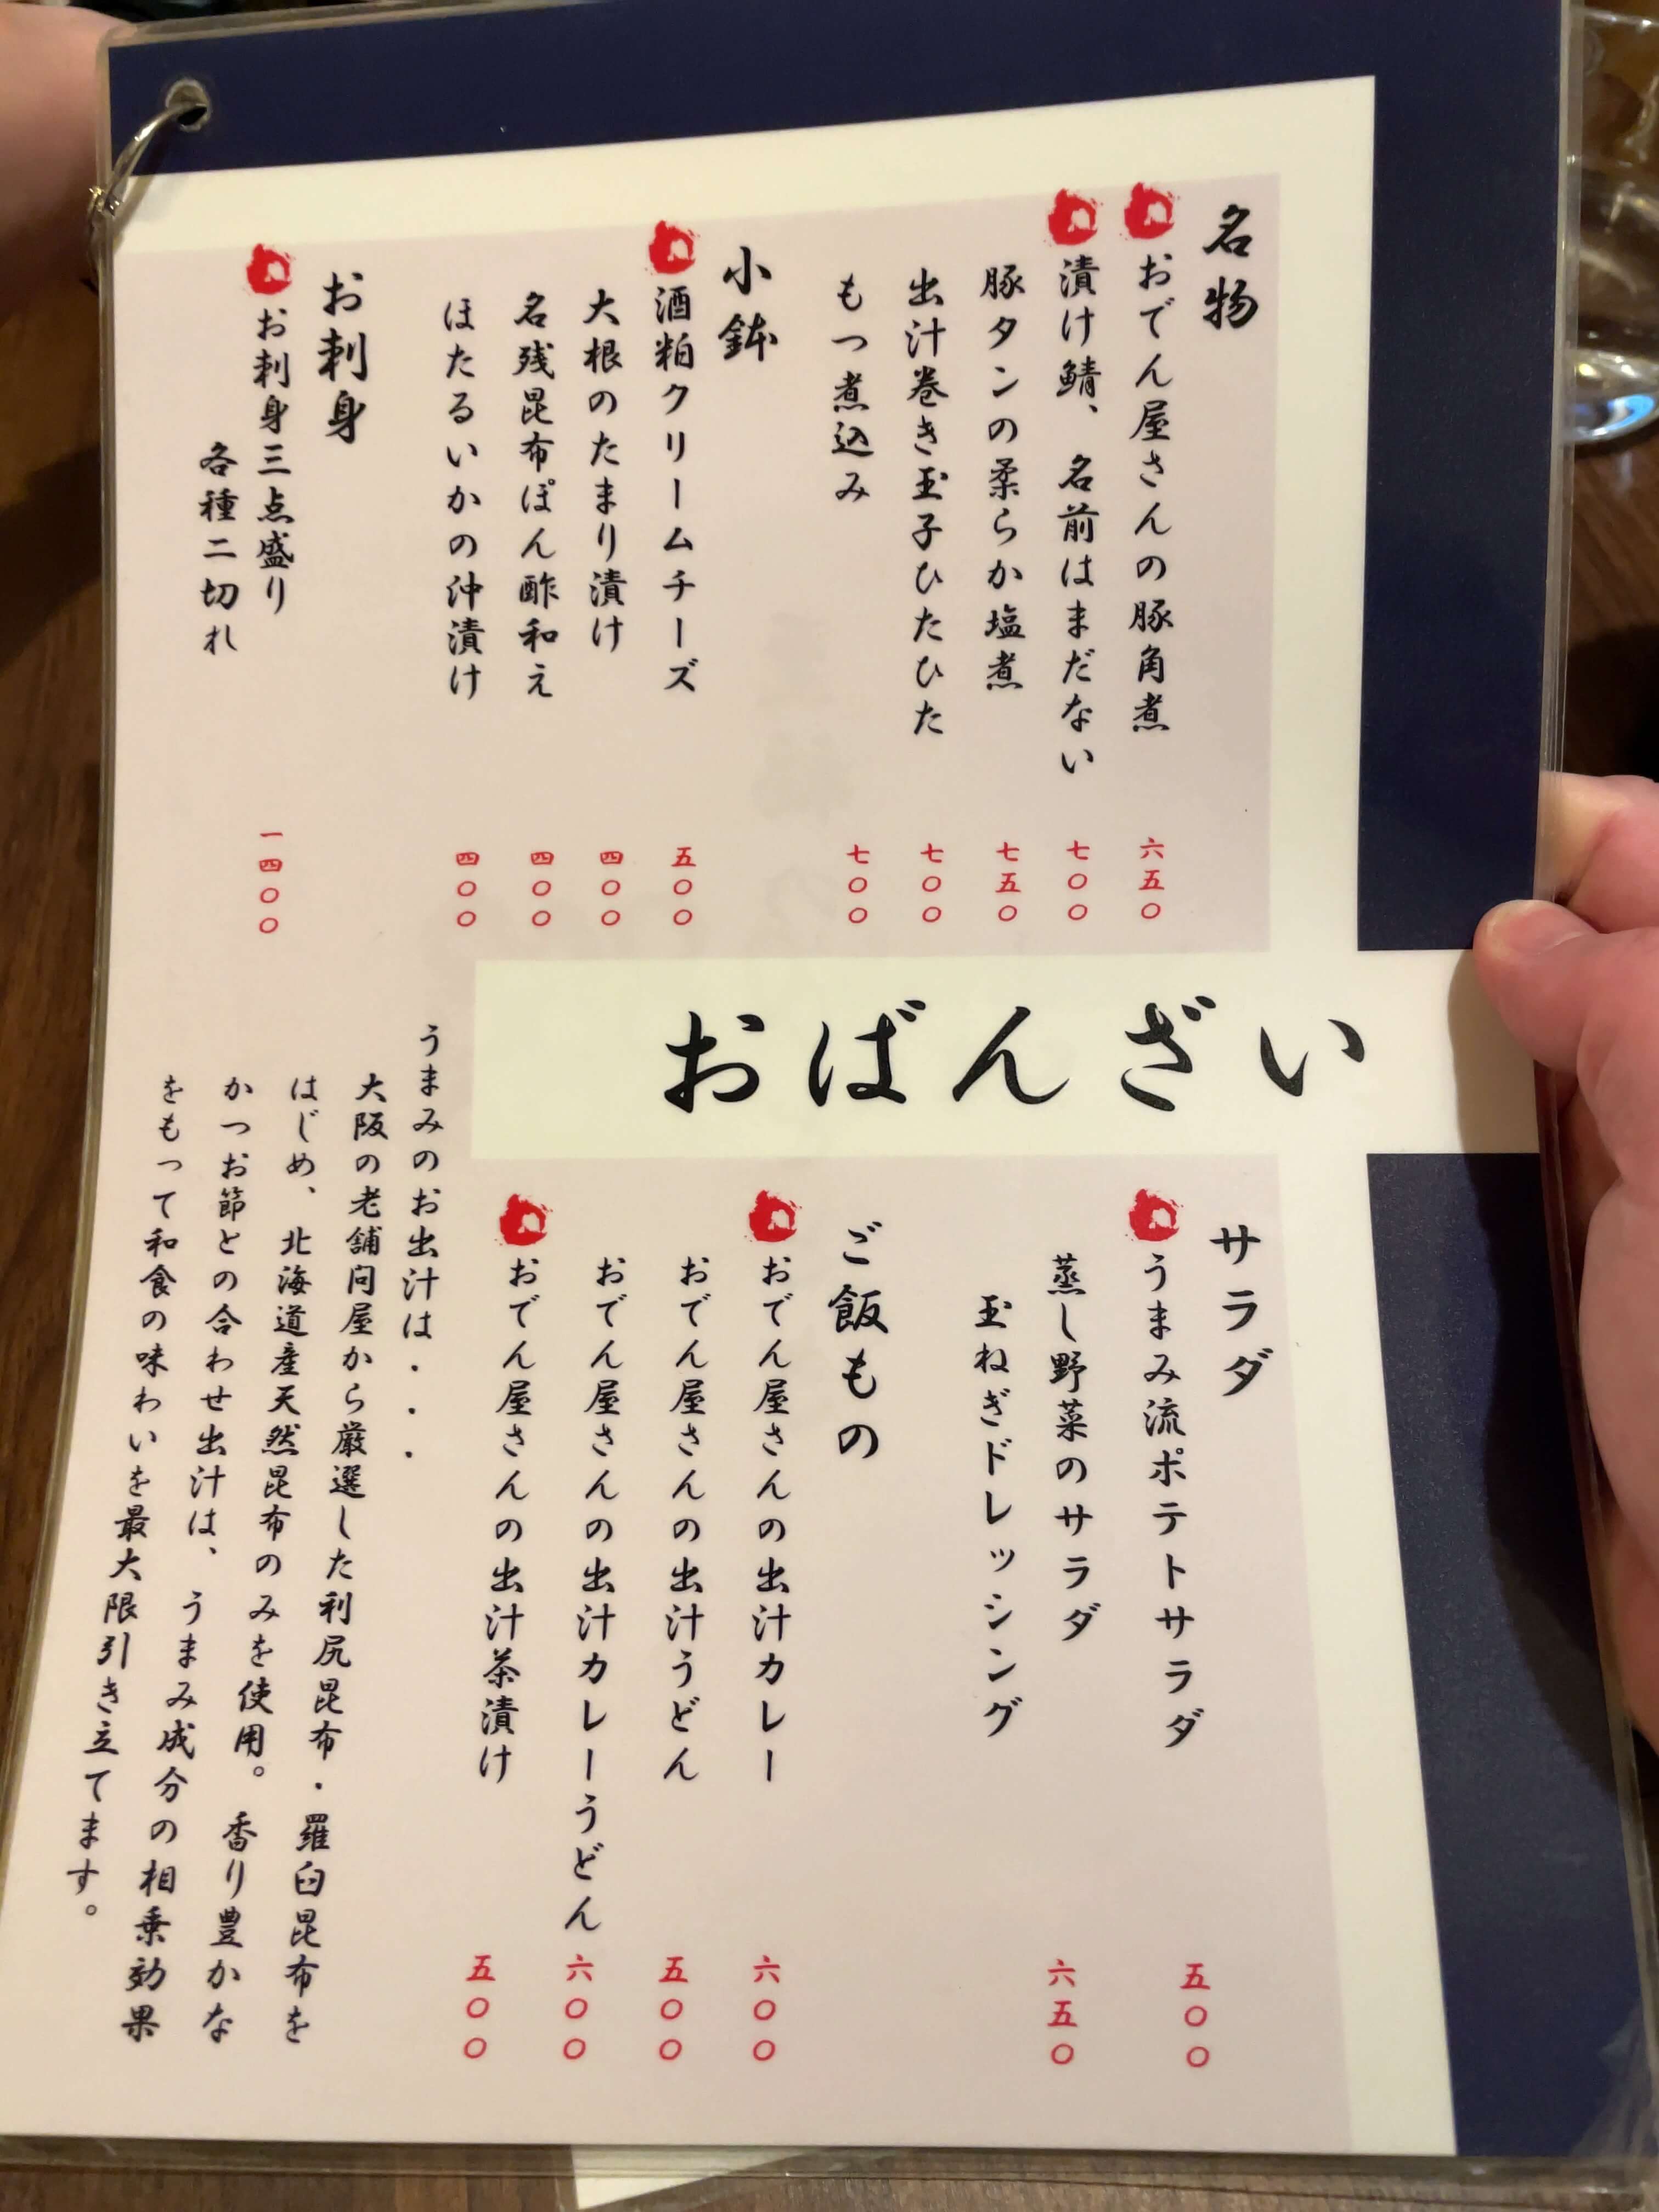 おばんざい
名物
おでん屋さんの豚角煮 六五〇
漬け鯖、名前はまだない 七〇〇
豚タンの柔らか塩煮 七五〇
出汁巻き玉子ひたひた 七〇〇
もつ煮込み 七〇〇
小鉢
酒粕クリームチーズ 五〇〇
大根のたまり漬け 四〇〇
名残昆布ぽん酢和え 四〇〇
ほたるいかの沖漬け 四〇〇
お刺身
お刺身三点盛り 一四〇〇
各種二切れ
サラダ
うまみ流ポテトサラダ 五〇〇
蒸し野菜のサラダ 六五〇
玉ねぎドレッシング
ご飯もの
おでん屋さんの出汁カレー 六〇〇
おでん屋さんの出汁うどん 五〇〇
おでん屋さんの出汁カレーうどん 六〇〇
おでん屋さんの出汁茶漬け 五〇〇
うまみのお出汁は・・・
大阪の老舗問屋から厳選した利尻昆布・羅臼昆布を
はじめ、北海道産天然昆布のみを使用。香り豊かな
かつお節との合わせ出汁は、うまみ成分の相乗効果
をもって和食の味わいを最大限引き立てます。